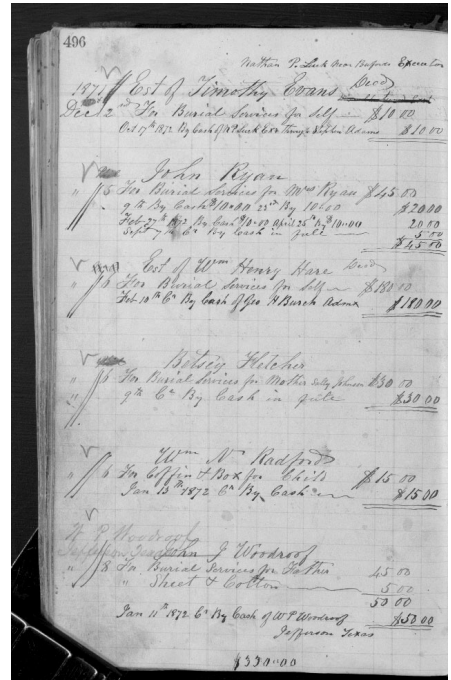 496
Nathan P. Luck Near Bufords Executor
1871 Est of Timothy Evans Decd
Dec 2nd For Burial Services for Self $10.00
Oct 17th 1872 By Cash of N P Luck Exr Through Adams $10.00
John Ryan
" 5 For Burial Services for Mrs Ryan $45.00
" 9th By Cash $10.00 23rd By 10.00 $20.00
Feb 27th 1872 By Cash $10.00 April 25th By $10.00 20.00
Sept 7th Cr By Cash in full 5.00
$45.00
Est of Wm Henry Hare Decd
" 6 For Burial Services for Self $180.00
Feb 10th Cr By Cash of Geo H Burch Admx $180.00
Betsey Fletcher
" 6 For Burial Services for Mother Sally Johnson $30.00
" 9th Cr By Cash in full $30.00
Wm N. Radford
" 6 For Coffin & Box for Child $15.00
Jan 13th 1872 Cr By Cash $15.00
W. P. Woodroof
Jefferson Texas John J Woodroof
" 8 For Burial Services for Father 45.00
" Sheet & Cotton 5.00
50.00
Jan 11th 1872 Cr By Cash of W P Woodroof $50.00
Jefferson Texas
$330.00